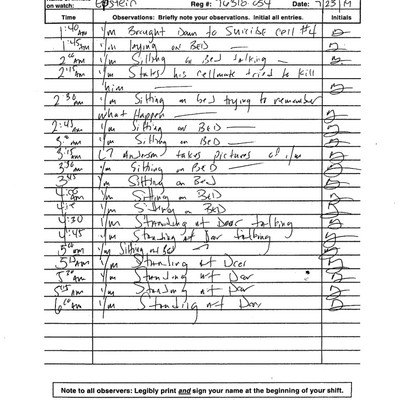 on watch): Epstein Reg #: 76318-054 Date: 7/23/19
Time Observations: Briefly note your observations. Initial all entries. Initials
1:40 AM I/m Brought Down to Suicide cell #4
1:45 AM I/m laying on BeD
2:00 AM I/m Sitting on Bed talking
2:15 AM I/m States his cellmate tried to kill
him
2:30 AM I/m Sitting on bed trying to remember
what Happen
2:45 AM I/m Sitting on BeD
I/m Sitting on BeD
3:15 AM takes pictures of I/m
3:30 AM I/m Sitting on BeD
3:45 I/m Sitting on Bed
4:00 AM I/m Sitting on BeD
4:15 I/m Sitting on BeD
4:30 I/m Standing at Door talking
4:45 I/m Standing at Door talking
5:00 AM I/m Sitting on Bed
5:15 AM I/m Standing at Door
5:30 AM I/m Standing at Door
5:45 AM I/m Standing at Door
6:00 AM I/m Standing at Door
Note to all observers: Legibly print and sign your name at the beginning of your shift.